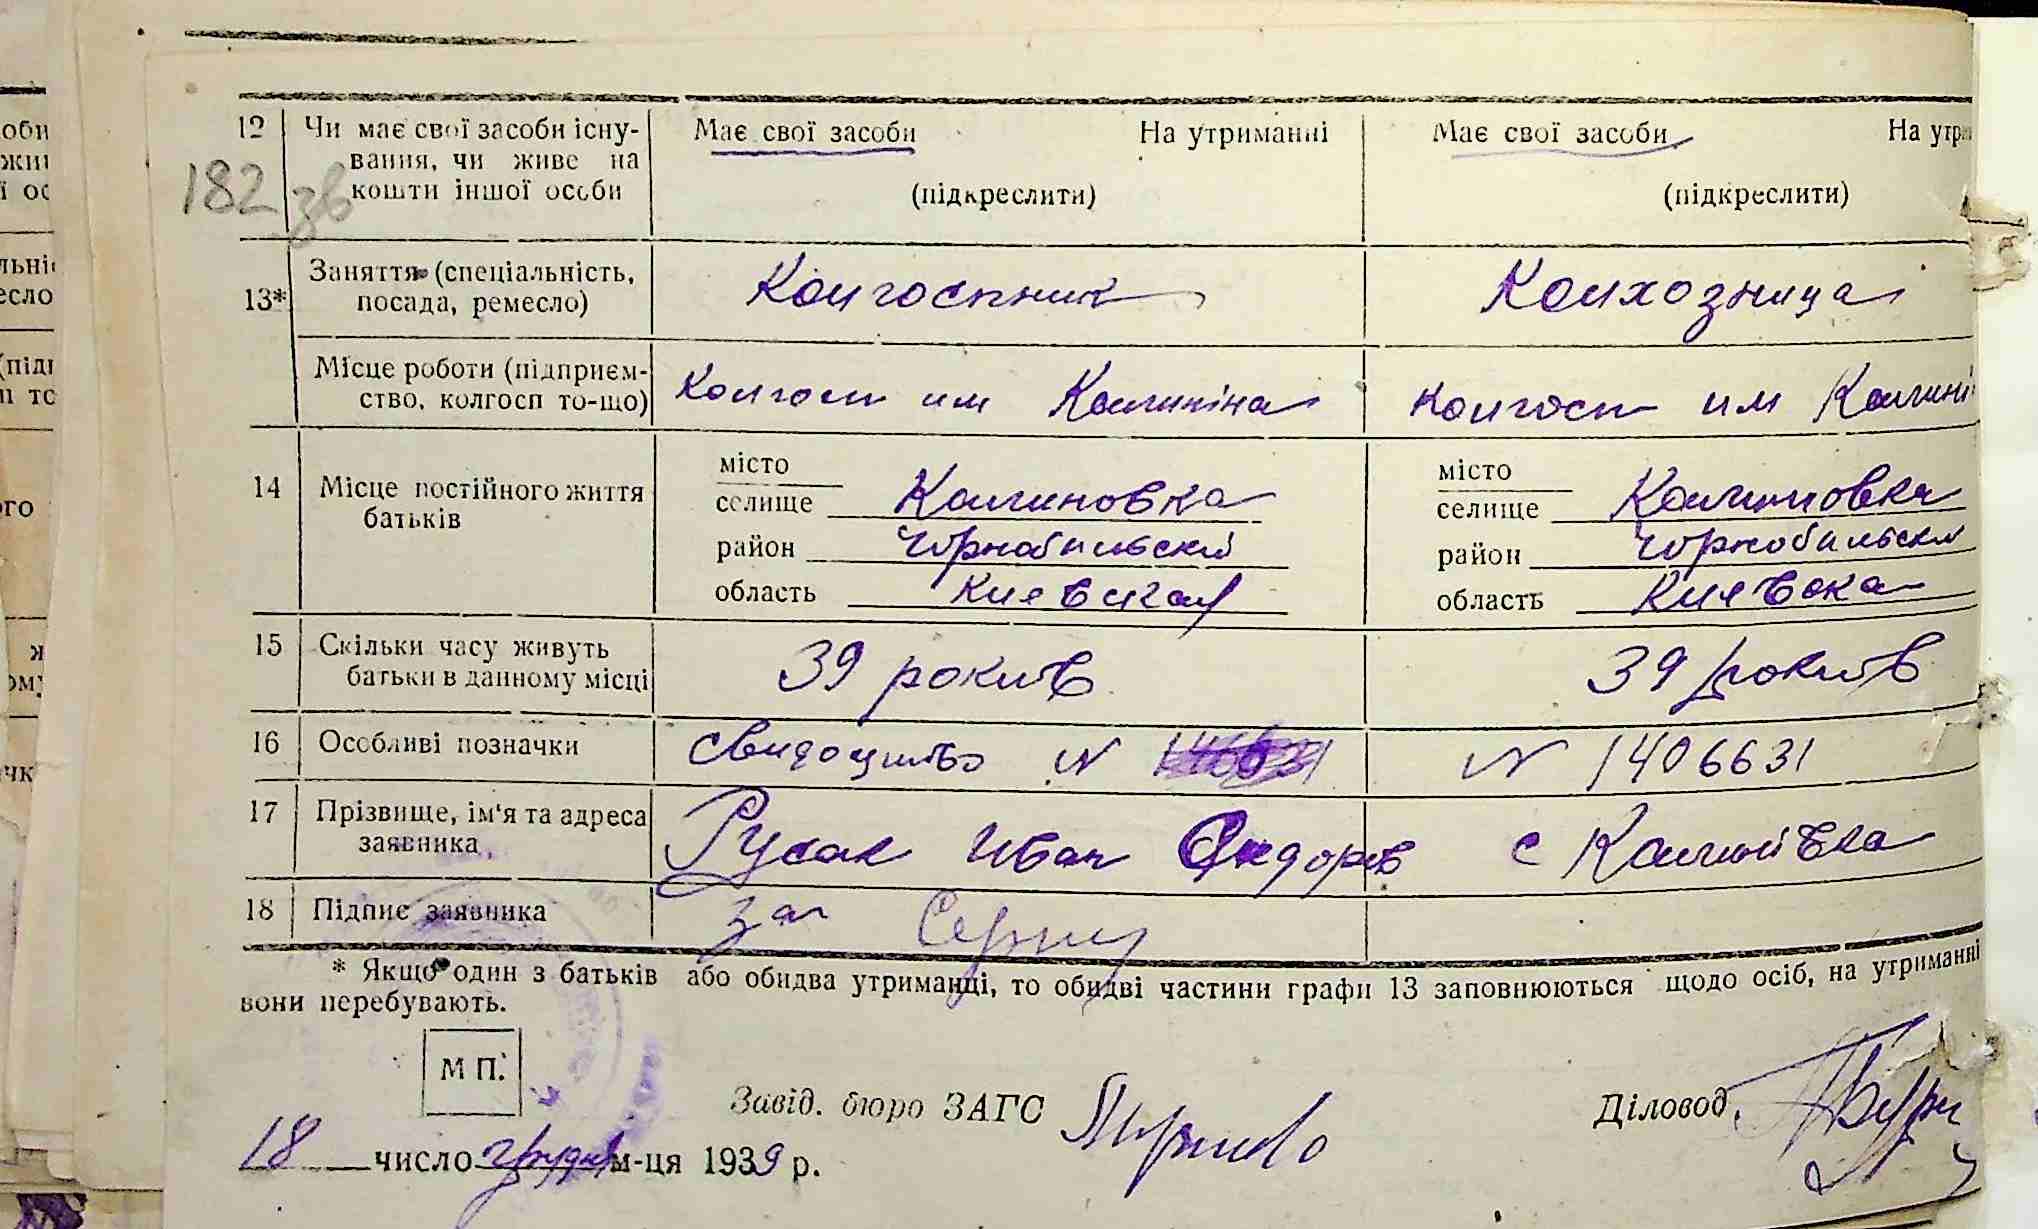 12 Чи має свої засоби існу-
вання, чи живе на
кошти іншої особи
182 зв
Має свої засоби На утриманні
(підкреслити)
Має свої засоби На утри
(підкреслити)
13* Заняття (спеціальність,
посада, ремесло)
Колгоспник
Колхозница
Місце роботи (підприєм-
ство, колгосп то-що)
Колгосп им Калиніна
Колгосп им Калині
14 Місце постійного життя
батьків
місто
селище Калиновка
район Чорнобильский
область Киевская
місто
селище Калиновка
район Чорнобильски
область Киевска
15 Скільки часу живуть
батьки в данному місці
39 рокив
39 рокив
16 Особливі позначки
Свидоцтво N
N 1406631
17 Прізвище, ім'я та адреса
заявника
Русак Иван с Калинівка
18 Підпис заявника
за
* Якщо один з батьків або обидва утриманці, то обидві частини графи 13 заповнюються щодо осіб, на утриманні
вони перебувають.
М П.
Завід. бюро ЗАГС
Діловод
18 число грудня м-ця 1939 р.